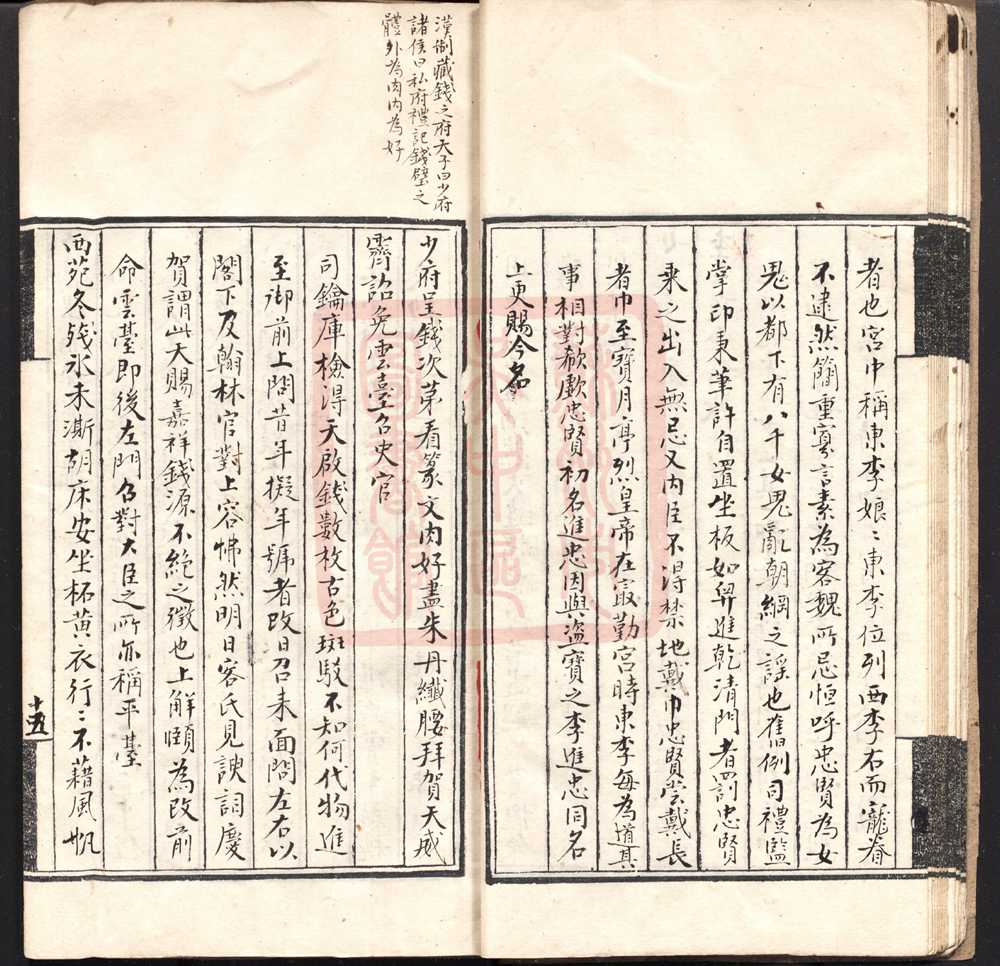 者也宮中稱東李娘〻東李位列西李右而寵眷
不逮然簡重寡言素為客魏所忌恒呼忠賢為女
鬼以都下有八千女鬼亂朝綱之謡也舊例司禮監
掌印秉筆許自置坐板如舁進乾清門者罰忠賢
乘之出入無忌又内臣不淂禁地戴巾忠賢嘗戴長
者巾至寶月亭烈皇帝在宮勤宮時東李每為道其
事相對欷歔忠賢初名進忠因與盜寶之李進忠同名
上更賜今名
漢制藏錢之府天子曰少府
諸侯曰私府禮記錢璧之
體外為肉内為好
少府呈錢次苐看篆文肉好盡朱丹纖腰拜賀天威
霽詔免雲臺召史官
司鑰庫檢淂天啟錢數枚古色斑駁不知何代物進
至御前上問昔年擬年號者改日召来面問左右以
閣下及翰林官對上容怫然明日客氏見諛詞慶
賀謂此天賜嘉祥錢源不絶之徵也上解頤為改前
命雲臺即後左門召對大臣之所亦稱平臺
西苑冬殘氷未澌胡床安坐柘黄衣行〻不藉風帆
十五